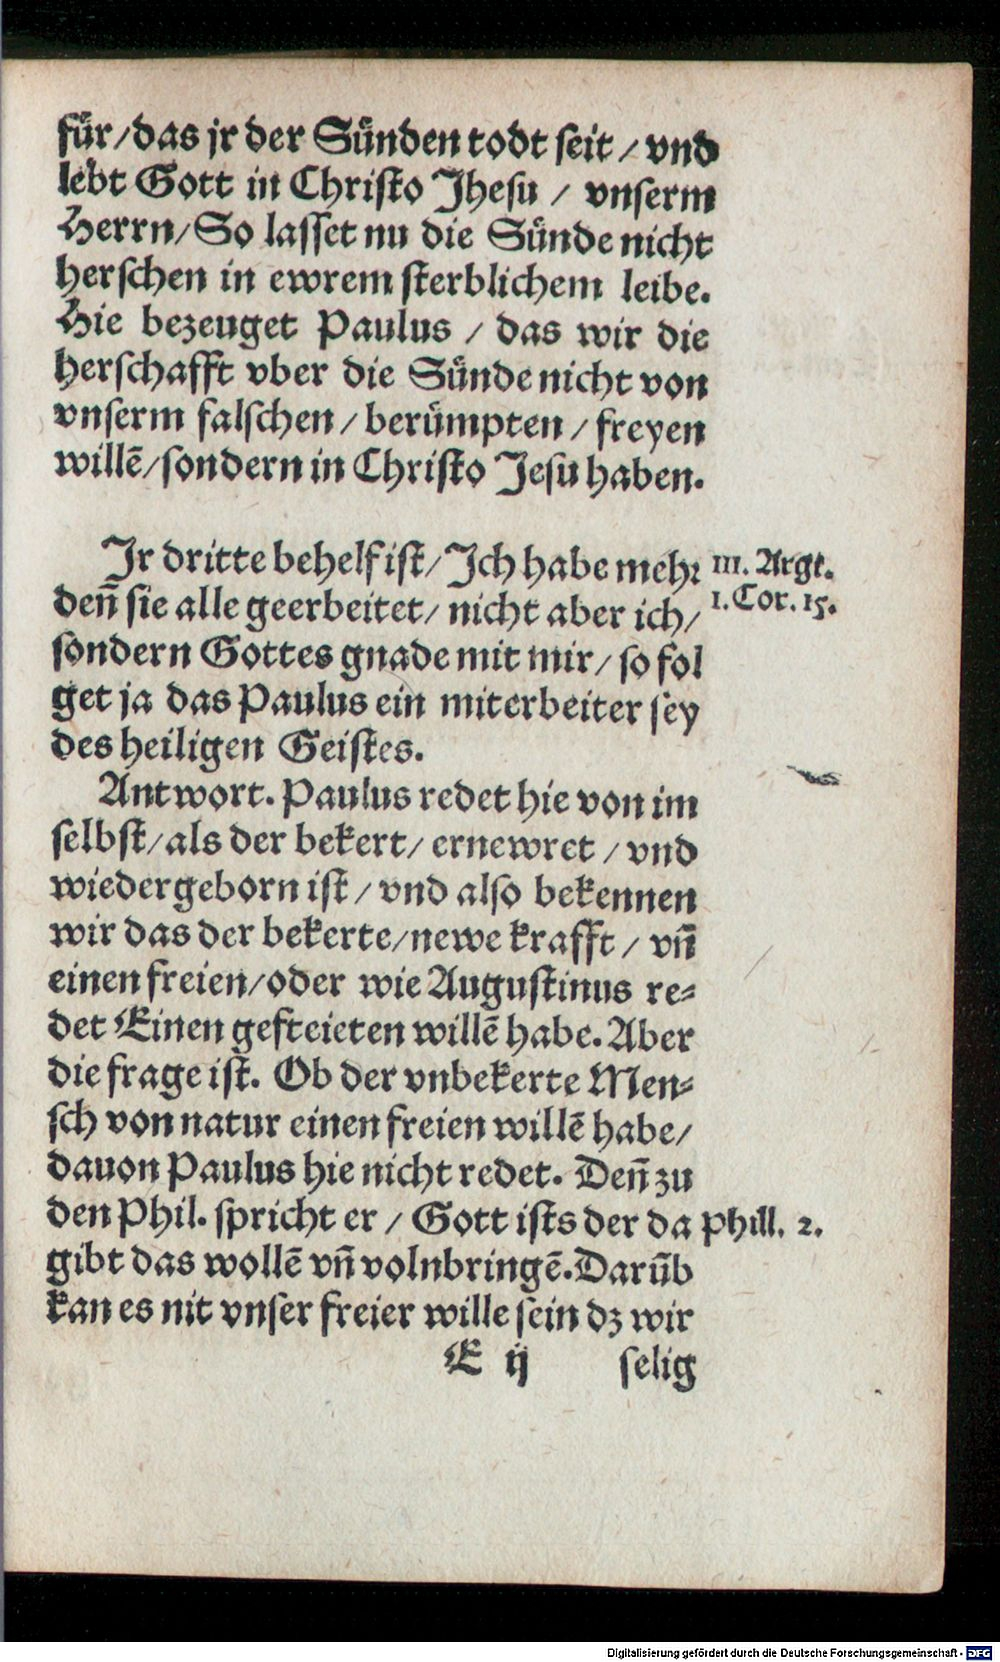 für/das jr der Sünden todt seit/vnd
lebt Gott in Christo Jhesu / vnserm
Herrn/So lasset nu die Sünde nicht
herschen in ewrem sterblichem leibe.
Hie bezeuget Paulus / das wir die
herschafft vber die Sünde nicht von
vnserm falschen/berümpten/freyen
willē/sondern in Christo Jesu haben.
Jr dritte behelf ist/Jch habe mehr
III. Argt.
deñ sie alle geerbeitet/nicht aber ich/
1. Cor. 15.
sondern Gottes gnade mit mir/so fol
get ja das Paulus ein miterbeiter sey
des heiligen Geistes.
Antwort. Paulus redet hie von im
selbst/als der bekert/ernewret/vnd
wiedergeborn ist/vnd also bekennen
wir das der bekerte/newe krafft/vñ
einen freien/oder wie Augustinus re-
det Einen gefteieten willē habe. Aber
die frage ist. Ob der vnbekerte Men-
sch von natur einen freien willē habe/
dauon Paulus hie nicht redet. Deñ zu
den Phil. spricht er/Gott ists der da
Phill. 2.
gibt das wollē vñ volnbringē. Darūb
kan es nit vnser freier wille sein dz wir
E ij
selig
Digitalisierung gefördert durch die Deutsche Forschungsgemeinschaft - DFG